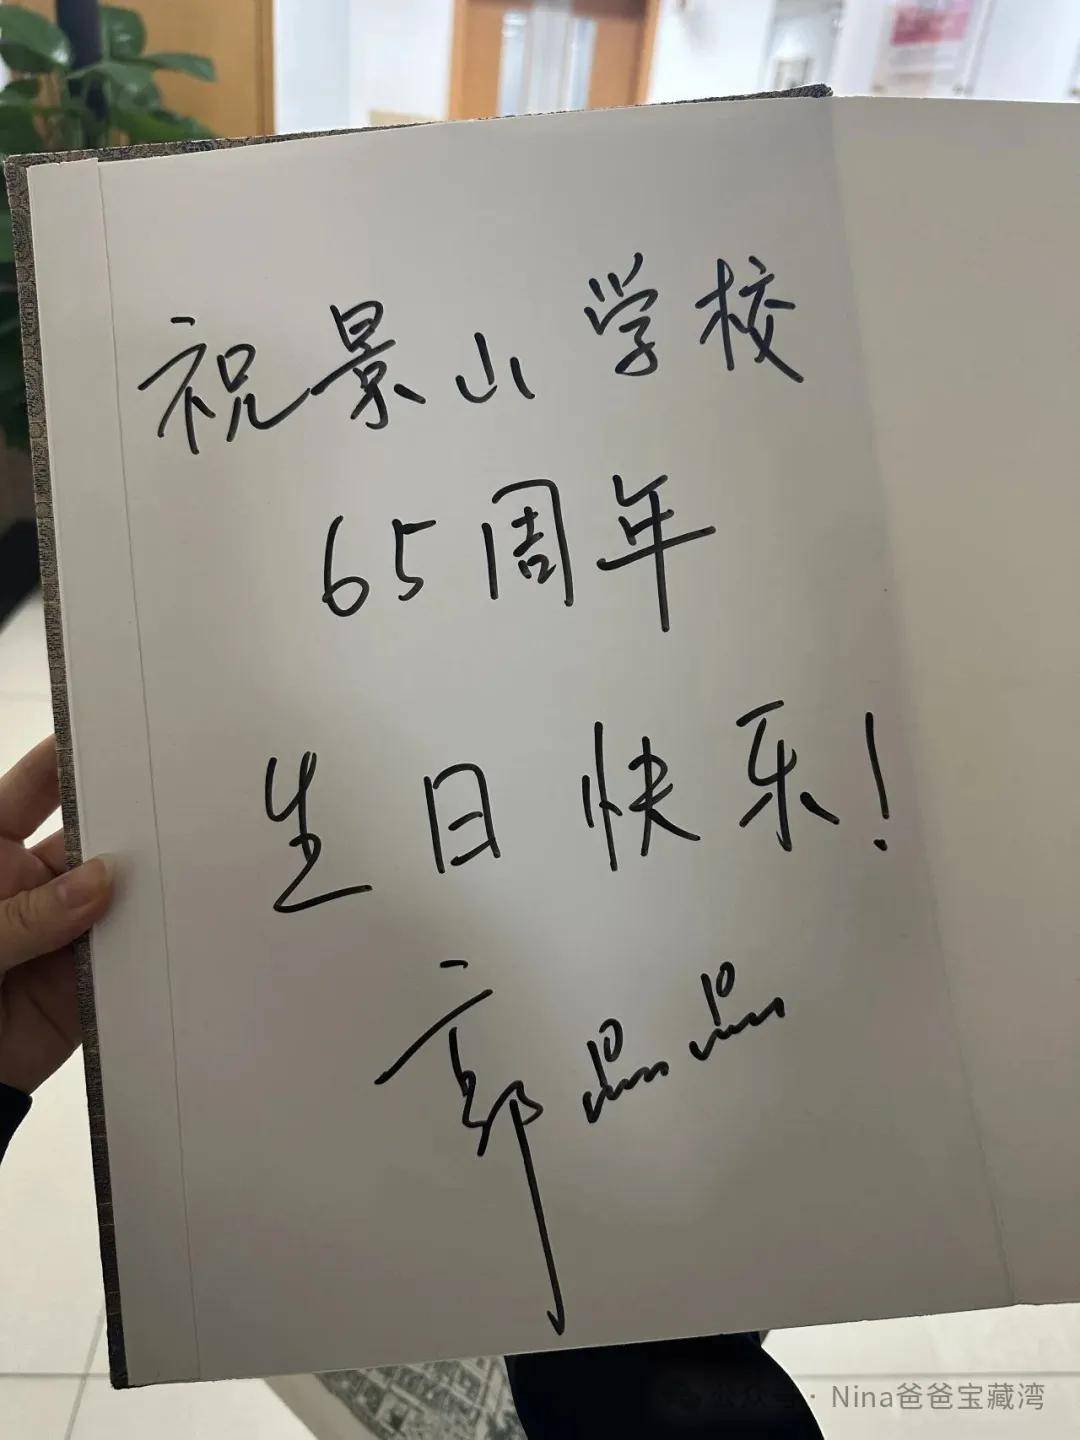 祝景山学校
65周年
生日快乐!
郭晶晶
公众号 · Nina爸爸宝藏湾